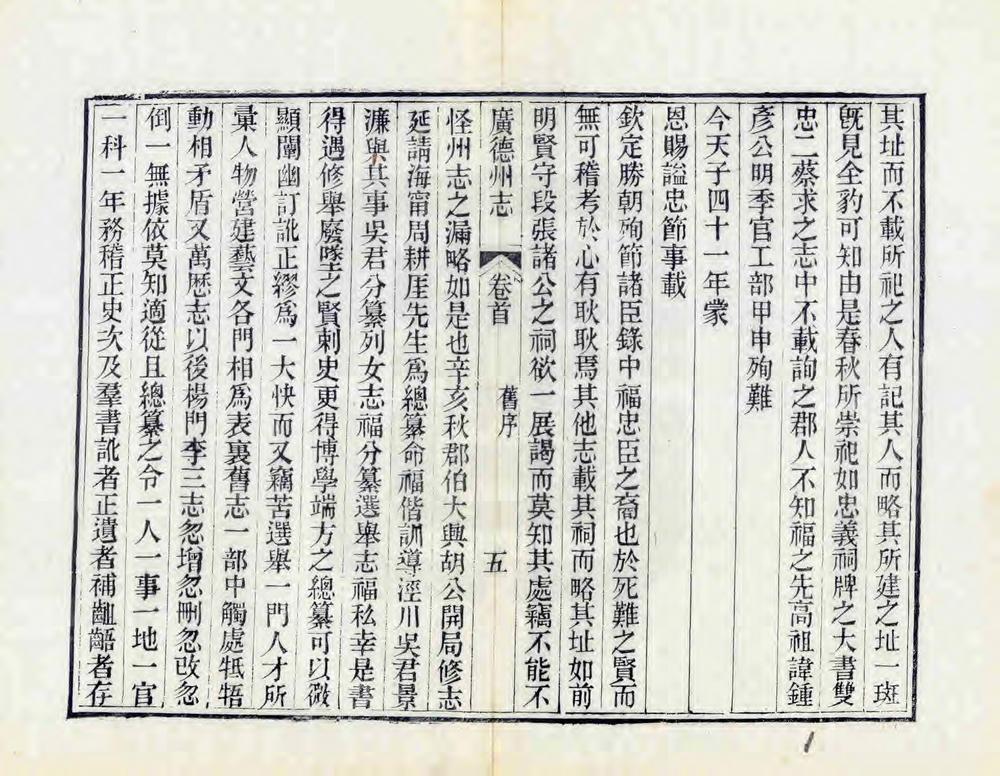 其址而不載所祀之人有記其人而略其所建之址一斑
旣見全豹可知由是春秋所崇祀如忠義祠牌之大書雙
忠二蔡求之志中不載詢之郡人不知福之先高祖諱鍾
彥公明季官工部甲申殉難
今天子四十一年蒙
恩賜謚忠節事載
欽定勝朝殉節諸臣錄中福忠臣之裔也於死難之賢而
無可稽考於心有耿耿焉其他志載其祠而略其址如前
明賢守段張諸公之祠欲一展謁而莫知其處竊不能不
廣德州志 卷首 舊序 五
怪州志之漏略如是也辛亥秋郡伯大興胡公開局修志
延請海甯周耕厓先生爲總纂命福偕訓導涇川吳君景
濂與其事吳君分纂列女志福分纂選舉志福私幸是書
得遇修舉廢墜之賢刺史更得博學端方之總纂可以微
顯闡幽訂訛正繆爲一大快而又竊苦選舉一門人才所
彙人物營建藝文各門相爲表裏舊志一部中觸處牴牾
動相矛盾又萬歷志以後楊門李三志忽增忽刪忽改忽
倒一無據依莫知適從且總纂之令一人一事一地一官
一科一年務稽正史次及羣書訛者正遺者補齟齬者存